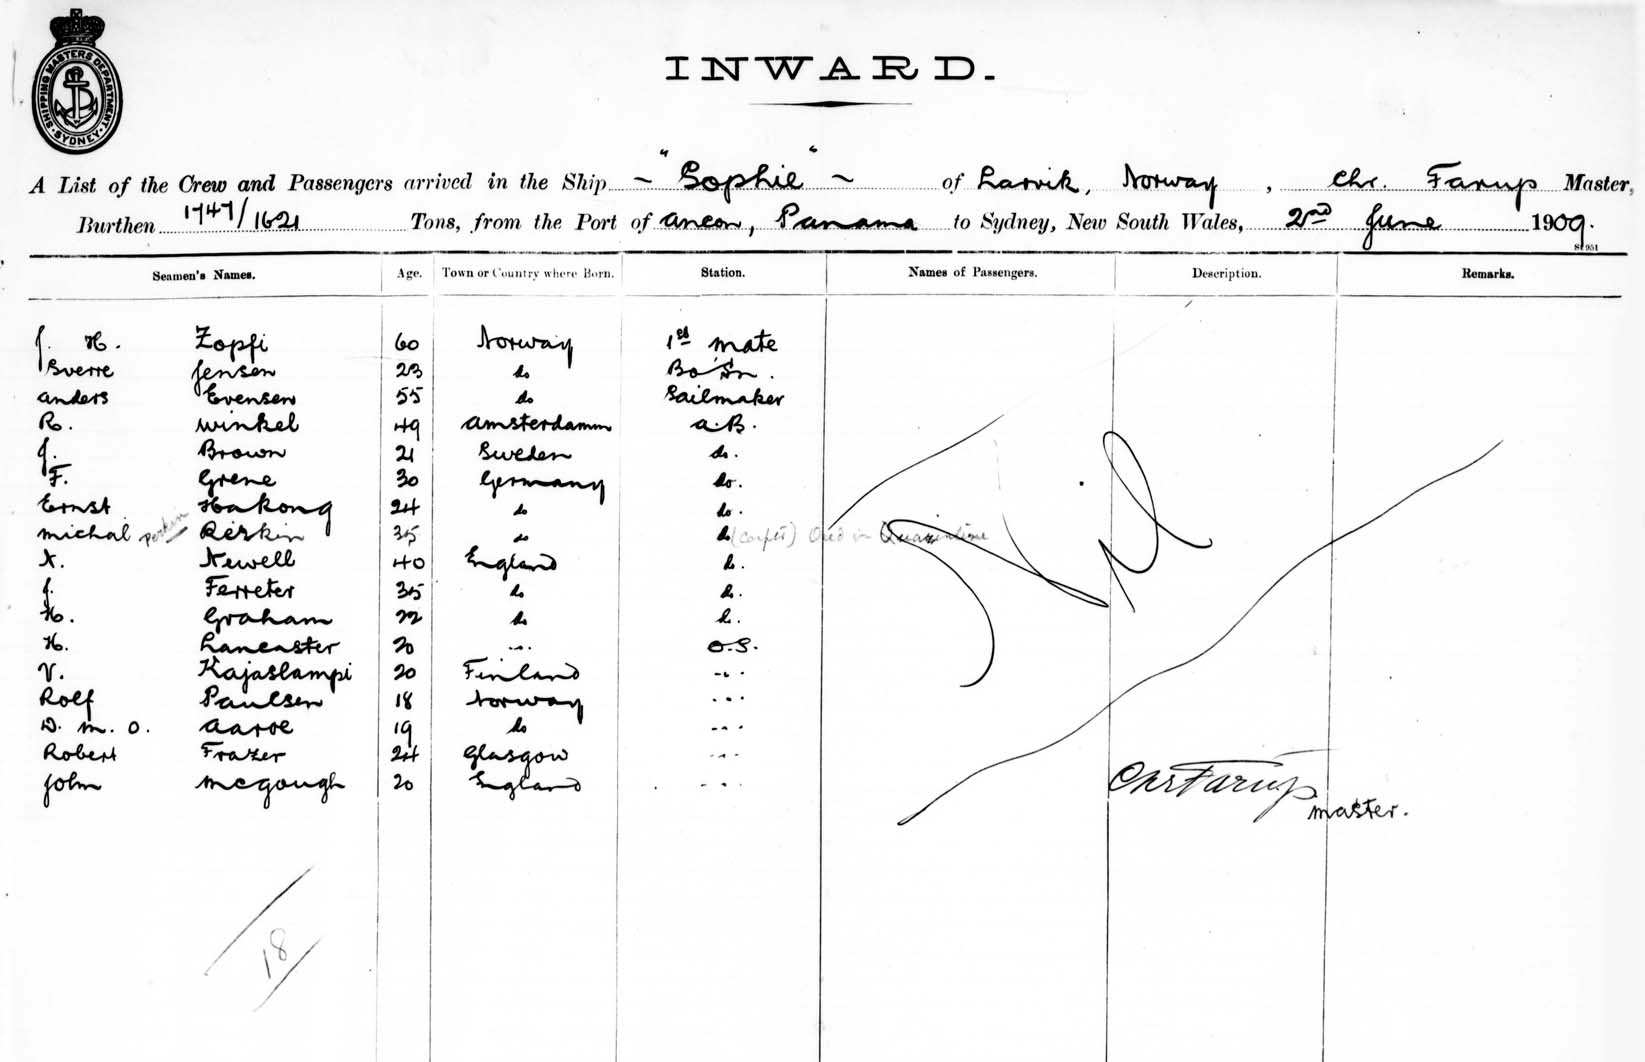 SHIPPING MASTERS DEPARTMENT SYDNEY
INWARD.
A List of the Crew and Passengers arrived in the Ship ~ "Sophie" ~ of Larvik, Norway, Chr. Farup Master,
Burthen 1747/1621 Tons, from the Port of Ancon, Panama to Sydney, New South Wales, 2nd June 1909.
Seamen's Names. Age. Town or Country where Born. Station. Names of Passengers. Description. Remarks.
J. H. Zopfi 60 Norway 1st mate
Sverre Jensen 23 do Bo'Sn.
Anders Evensen 55 do Sailmaker
R. Winkel 49 Amsterdamm A.B.
J. Brown 21 Sweden do.
F. Grene 30 Germany do.
Ernst Hakong 24 do do.
Michal Perkin Rerkin 35 do do Died in Quarantine
N. Newell 40 England do.
J. Ferreter 35 do do.
H. Graham 22 do do.
H. Lancaster 20 ... O.S.
V. Kajaslampi 20 Finland ...
Rolf Paulsen 18 Norway ...
D. M. O. Aaroe 19 do ...
Robert Frazer 24 Glasgow ...
John McGough 20 England ...
Nil
Chr Farup
Master.
18